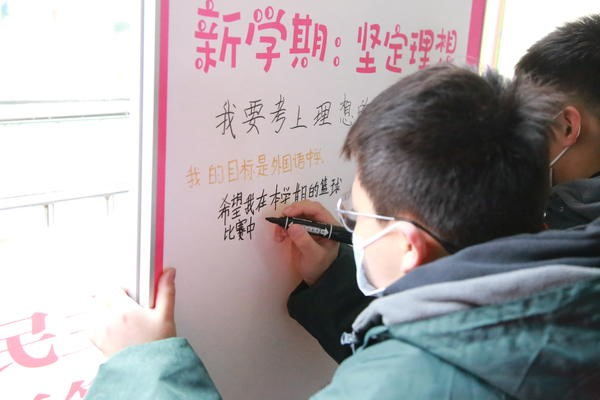 新学期：坚定理想
我要考上理想的
我的目标是外国语中学、
希望我在本学期的篮球
比赛中
民